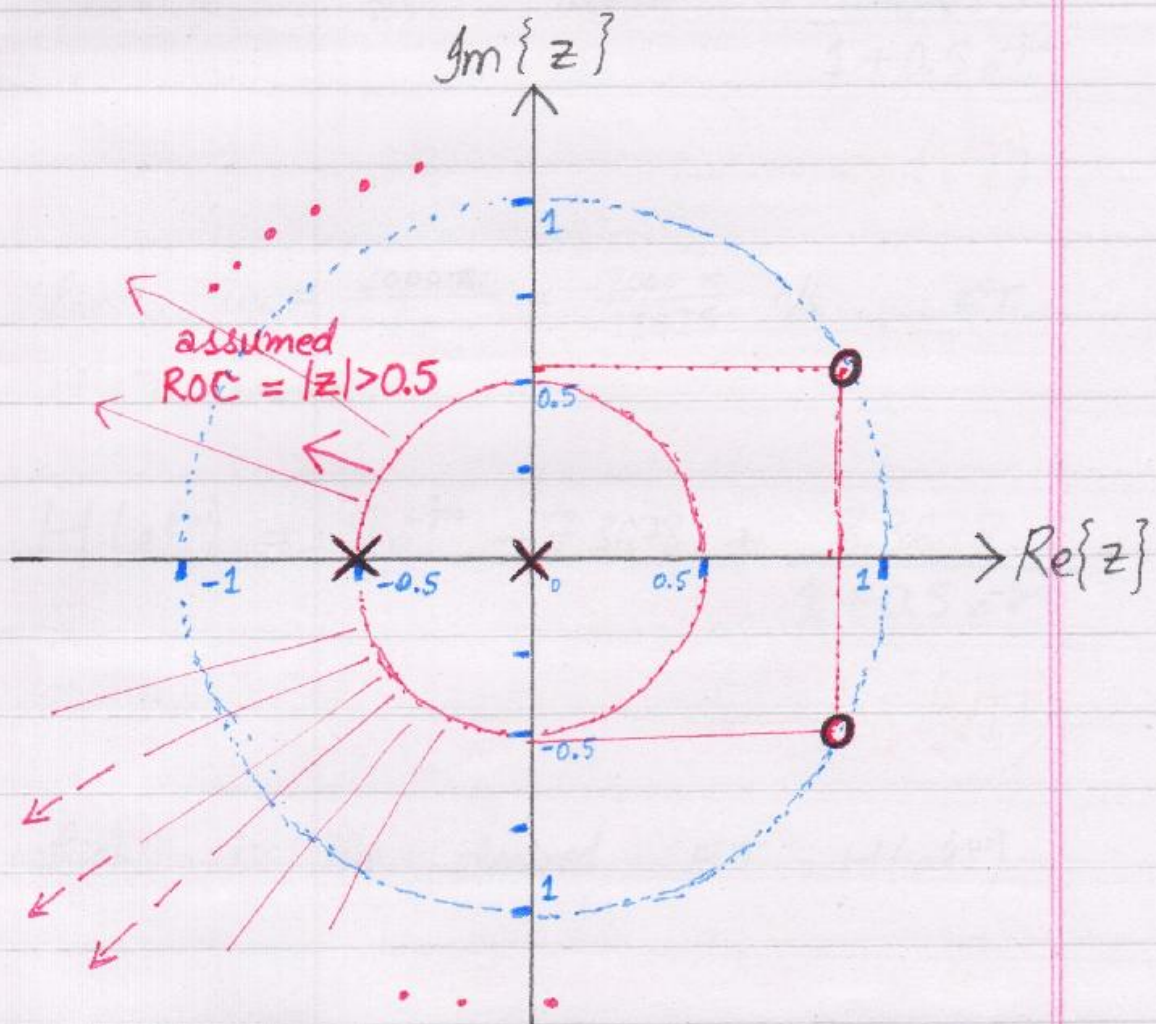 Im{z}
1
assumed
ROC = |z|>0.5
0.5
-1
-0.5
0
0.5
1
Re{z}
-0.5
1